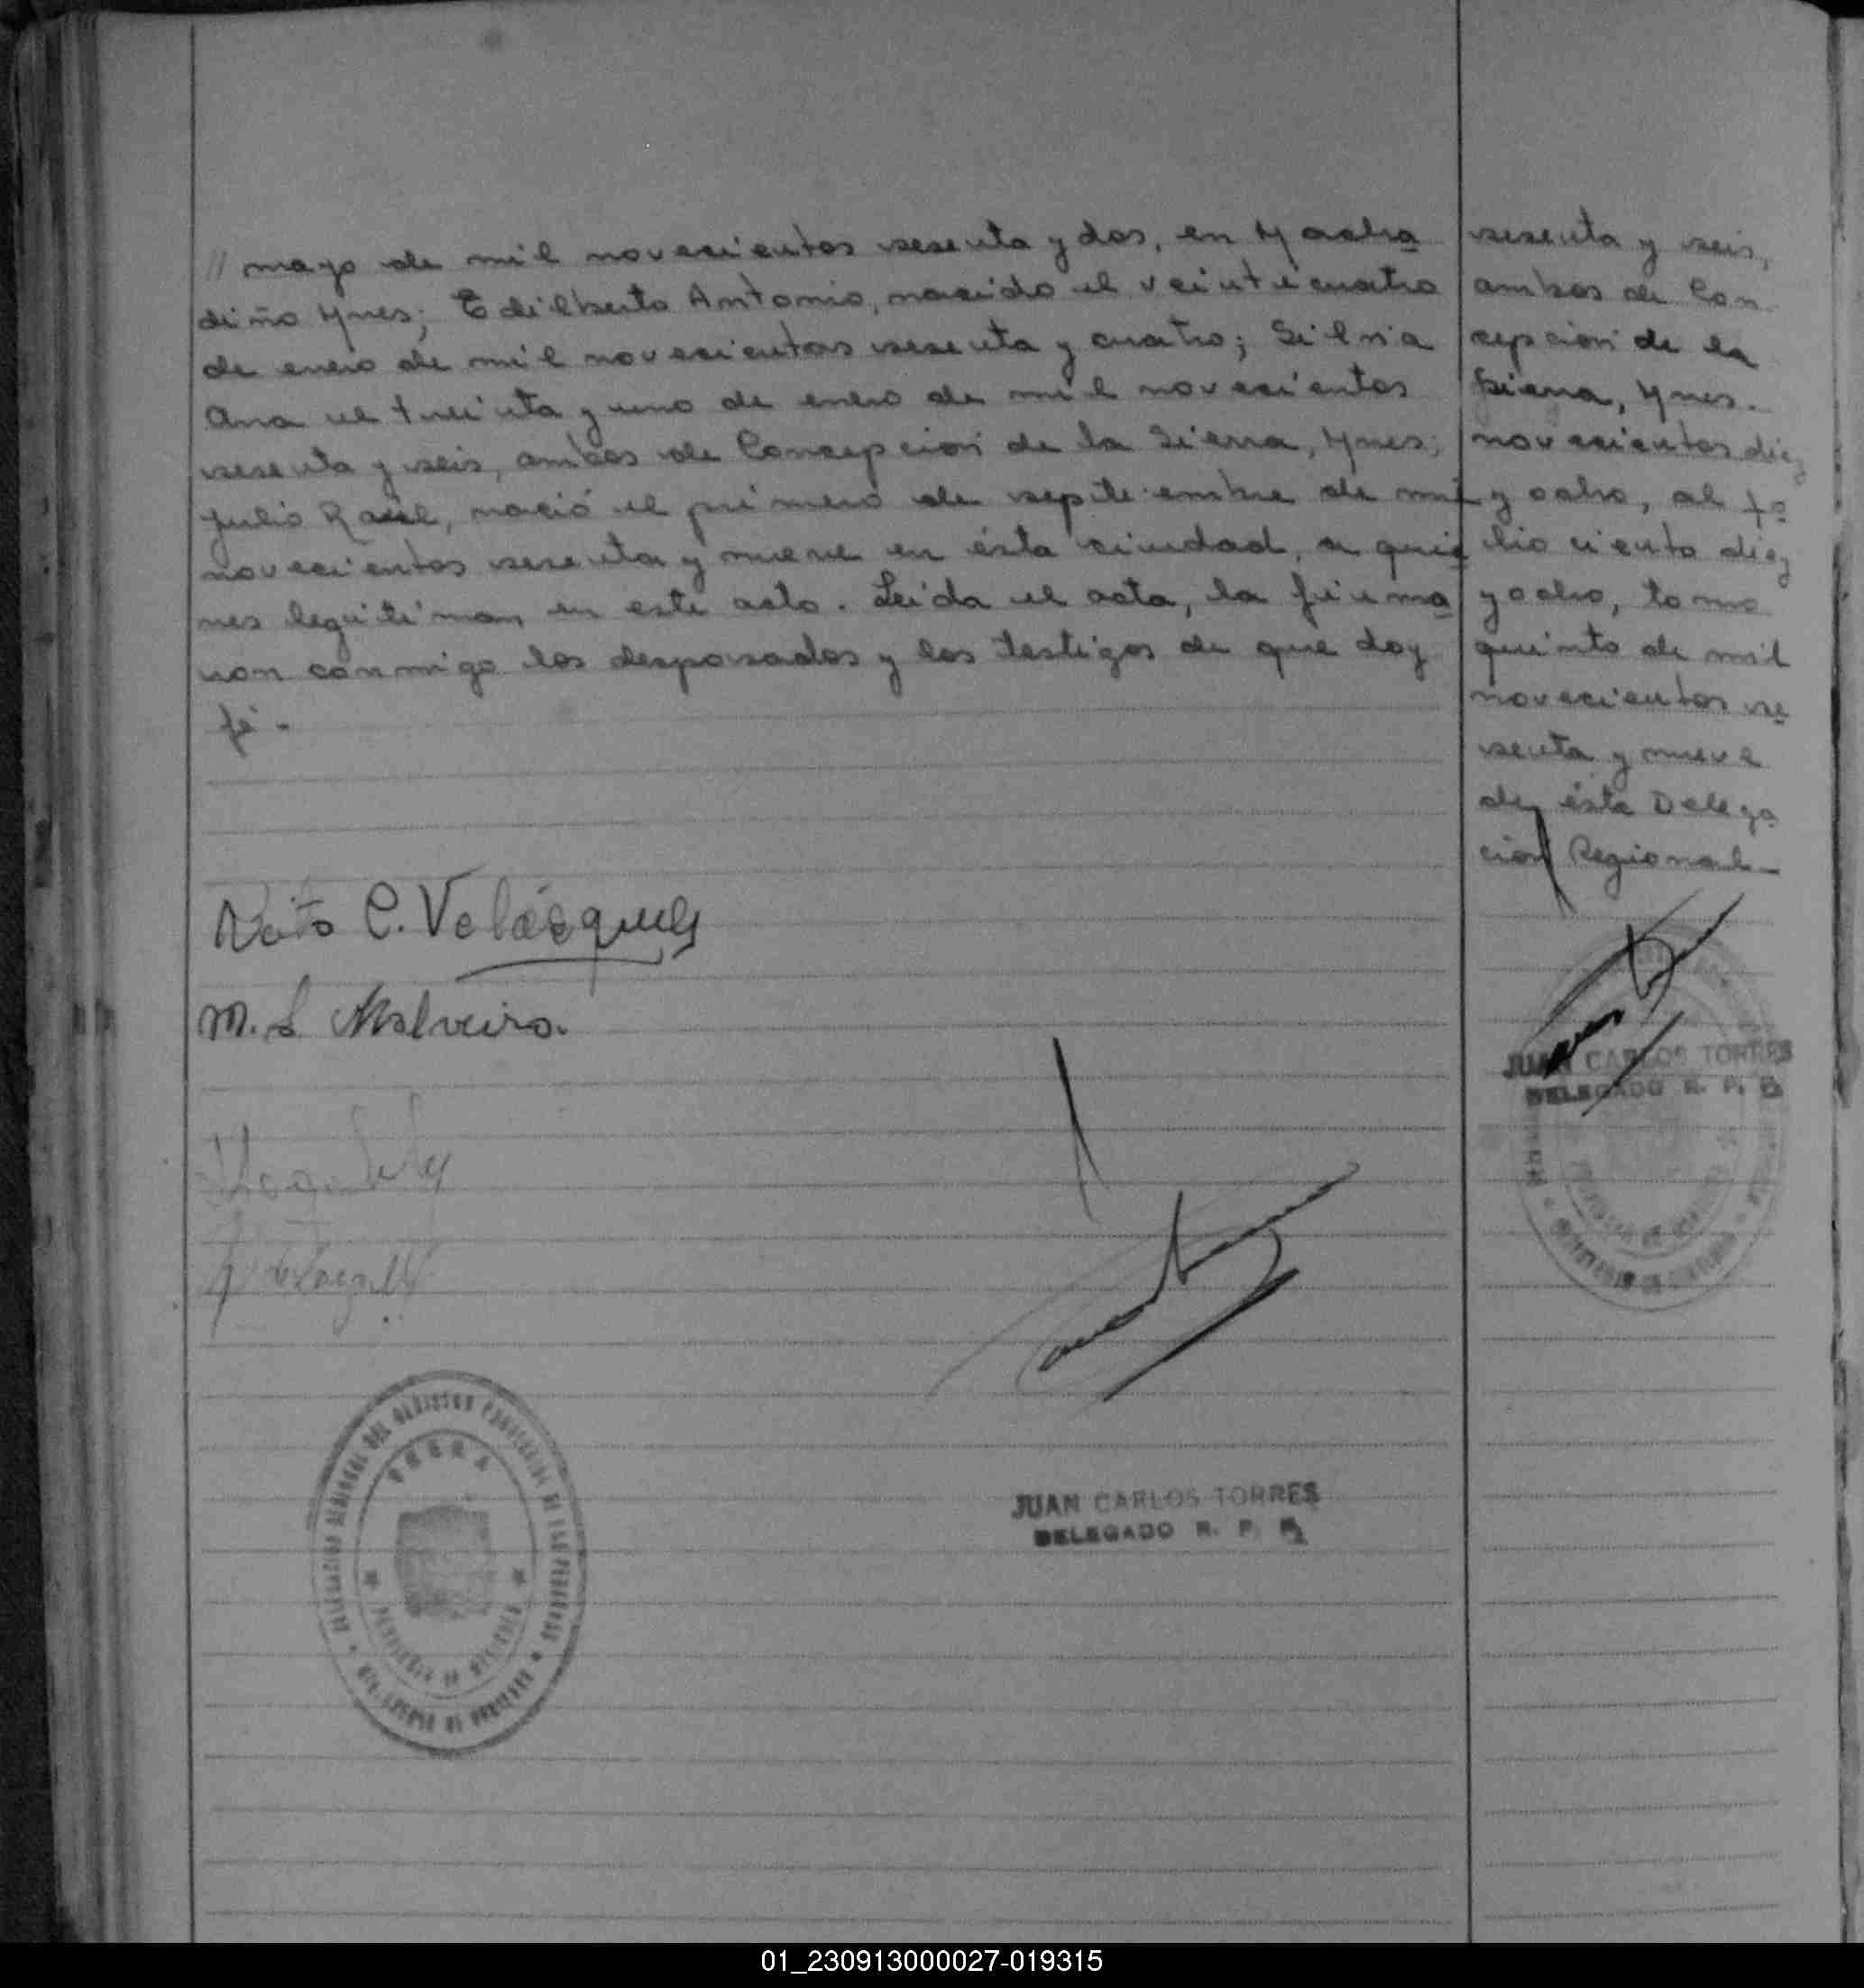 // mayo de mil novecientos sesenta y dos, en Macha
diño Mnes; Edilberto Antonio, nacido el veinticuatro
de enero de mil novecientos sesenta y cuatro; Silvia
Ana el treinta y uno de enero de mil novecientos
sesenta y seis, ambos de Concepcion de la Sierra, Mnes;
Julio Raúl, nació el primero de septiembre de mil
novecientos sesenta y nueve en ésta ciudad, a quie
nes legitiman en este acto. Leida el acta, la firma
ron conmigo los desposados y los testigos de que doy
fé -
C. Velásquez
M. S. Malveira
JUAN CARLOS TORRES
DELEGADO R. P. P.
sesenta y seis,
ambos de Con
cepción de la
Sierra, Mnes.
novecientos diez
y ocho, al fo
lio ciento diez
y ocho, tomo
quinto de mil
novecientos se
senta y nueve
de ésta Delega
ción Regional -
JUAN CARLOS TORRES
DELEGADO R. P. P.
01_230913000027-019315